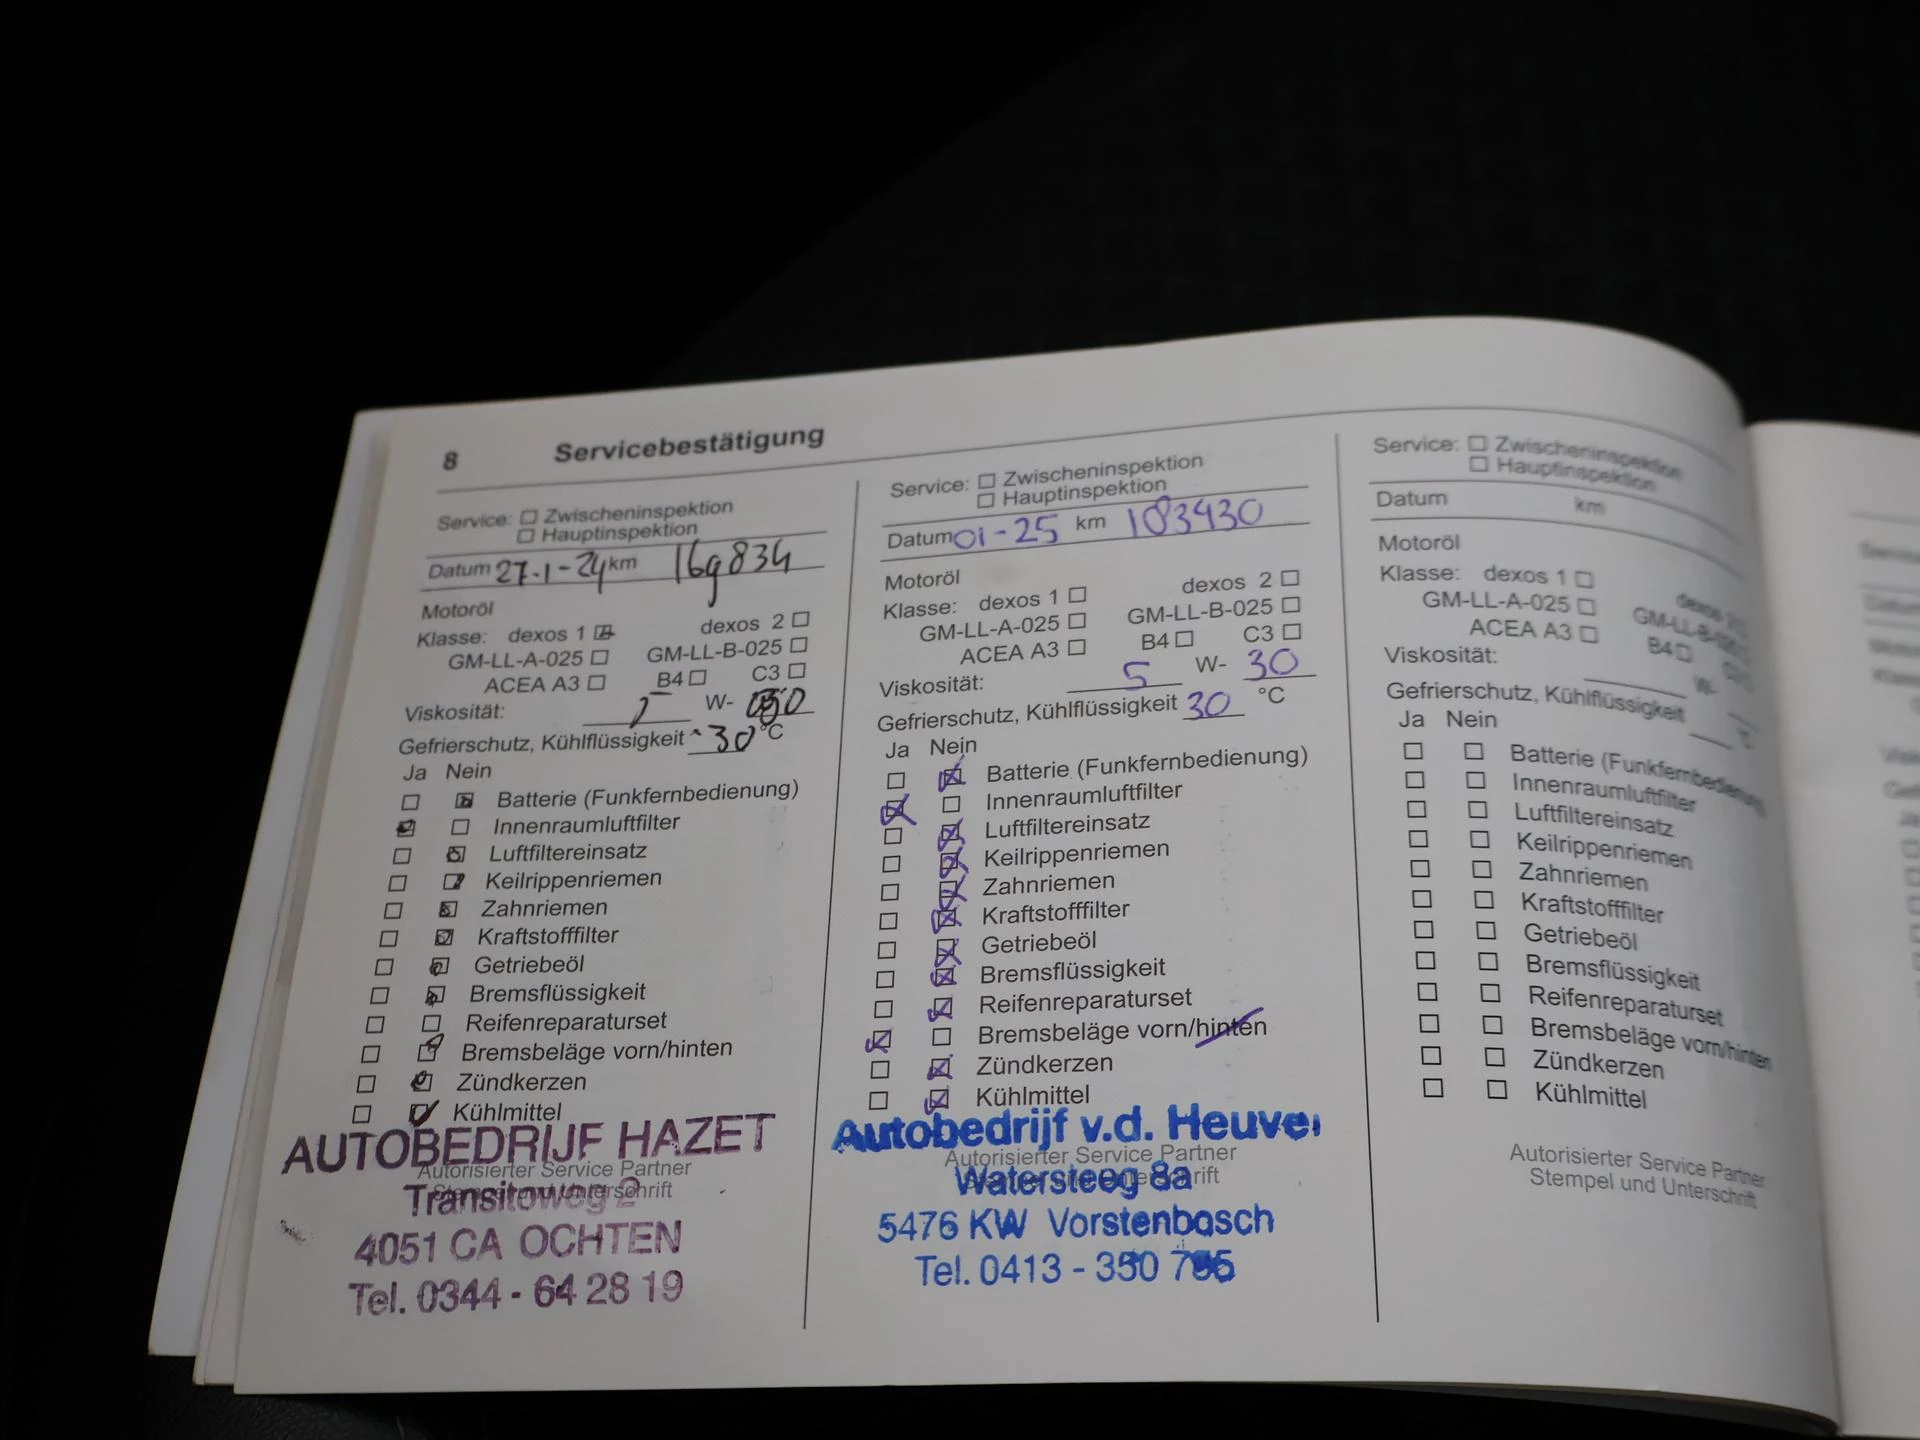 8 Servicebestätigung
Service: Zwischeninspektion
Hauptinspektion
Datum 27-1-24 km 169834
Motoröl
Klasse: dexos 1 dexos 2
GM-LL-A-025 GM-LL-B-025
ACEA A3 B4 C3
Viskosität: W-
Gefrierschutz, Kühlflüssigkeit -30 °C
Ja Nein
Batterie (Funkfernbedienung)
Innenraumluftfilter
Luftfiltereinsatz
Keilrippenriemen
Zahnriemen
Kraftstofffilter
Getriebeöl
Bremsflüssigkeit
Reifenreparaturset
Bremsbeläge vorn/hinten
Zündkerzen
Kühlmittel
AUTOBEDRIJF HAZET
Autorisierter Service Partner
Stempel und Unterschrift
Transitoweg 2
4051 CA OCHTEN
Tel. 0344 - 64 28 19
Service: Zwischeninspektion
Hauptinspektion
Datum 01-25 km 183930
Motoröl
Klasse: dexos 1 dexos 2
GM-LL-A-025 GM-LL-B-025
ACEA A3 B4 C3
Viskosität: 5 W- 30
Gefrierschutz, Kühlflüssigkeit 30 °C
Ja Nein
Batterie (Funkfernbedienung)
Innenraumluftfilter
Luftfiltereinsatz
Keilrippenriemen
Zahnriemen
Kraftstofffilter
Getriebeöl
Bremsflüssigkeit
Reifenreparaturset
Bremsbeläge vorn/hinten
Zündkerzen
Kühlmittel
Autobedrijf v.d. Heuvel
Autorisierter Service Partner
Watersteeg 8a
5476 KW Vorstenbosch
Tel. 0413 - 350
Service: Zwischeninspektion
Hauptinspektion
Datum km
Motoröl
Klasse: dexos 1 dexos 2
GM-LL-A-025 GM-LL-B-025
ACEA A3 B4 C3
Viskosität: W-
Gefrierschutz, Kühlflüssigkeit °C
Ja Nein
Batterie (Funkfernbedienung)
Innenraumluftfilter
Luftfiltereinsatz
Keilrippenriemen
Zahnriemen
Kraftstofffilter
Getriebeöl
Bremsflüssigkeit
Reifenreparaturset
Bremsbeläge vorn/hinten
Zündkerzen
Kühlmittel
Autorisierter Service Partner
Stempel und Unterschrift